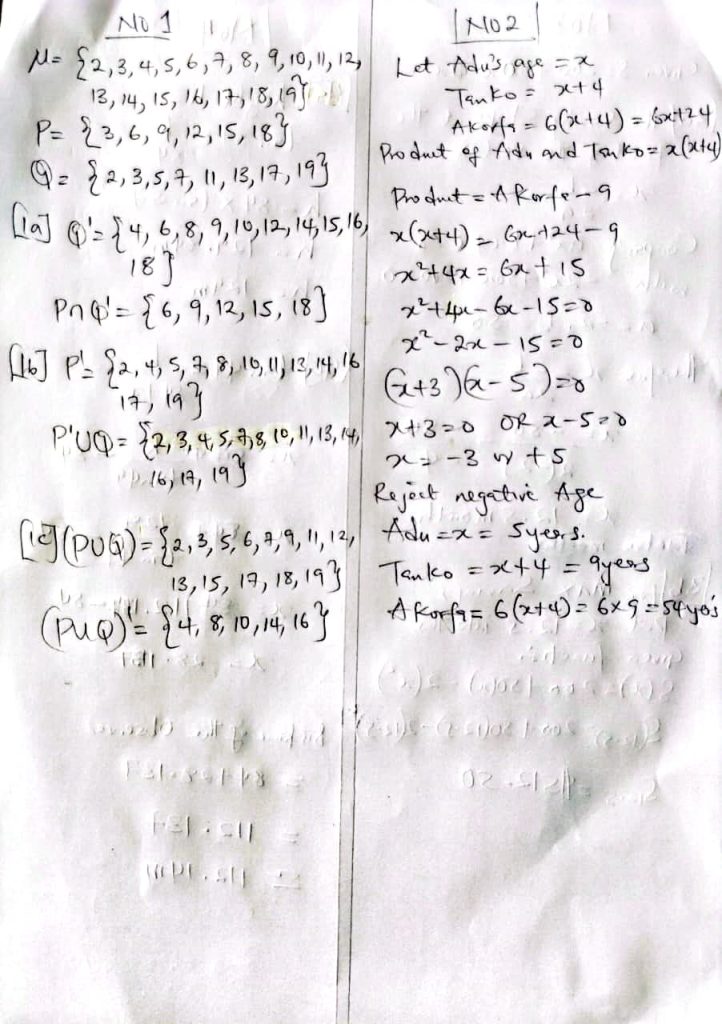 NO 1
μ= {2,3,4,5,6,7,8,9,10,11,12,
13,14,15,16,17,18,19}
P= {3,6,9,12,15,18}
Q= {2,3,5,7,11,13,17,19}
[1a] Q'= {4,6,8,9,10,12,14,15,16,
18}
P∩Q'= {6,9,12,15,18}
[1b] P'= {2,4,5,7,8,10,11,13,14,16
17,19}
P'UQ= {2,3,4,5,7,8,10,11,13,14,
16,17,19}
[1c] (PUQ)= {2,3,5,6,7,9,11,12,
13,15,17,18,19}
(PUQ)'= {4,8,10,14,16}
NO 2
Let Adu's age = x
Tanko = x+4
Akorfa = 6(x+4) = 6x+24
Product of Adu and Tanko = x(x+4)
Product = Akorfa - 9
x(x+4) = 6x+24-9
x²+4x = 6x+15
x²+4x-6x-15=0
x²-2x-15=0
(x+3)(x-5)=0
x+3=0 OR x-5=0
x= -3 or +5
Reject negative Age
Adu=x= 5years.
Tanko = x+4 = 9years
Akorfa= 6(x+4)= 6x9=54yrs